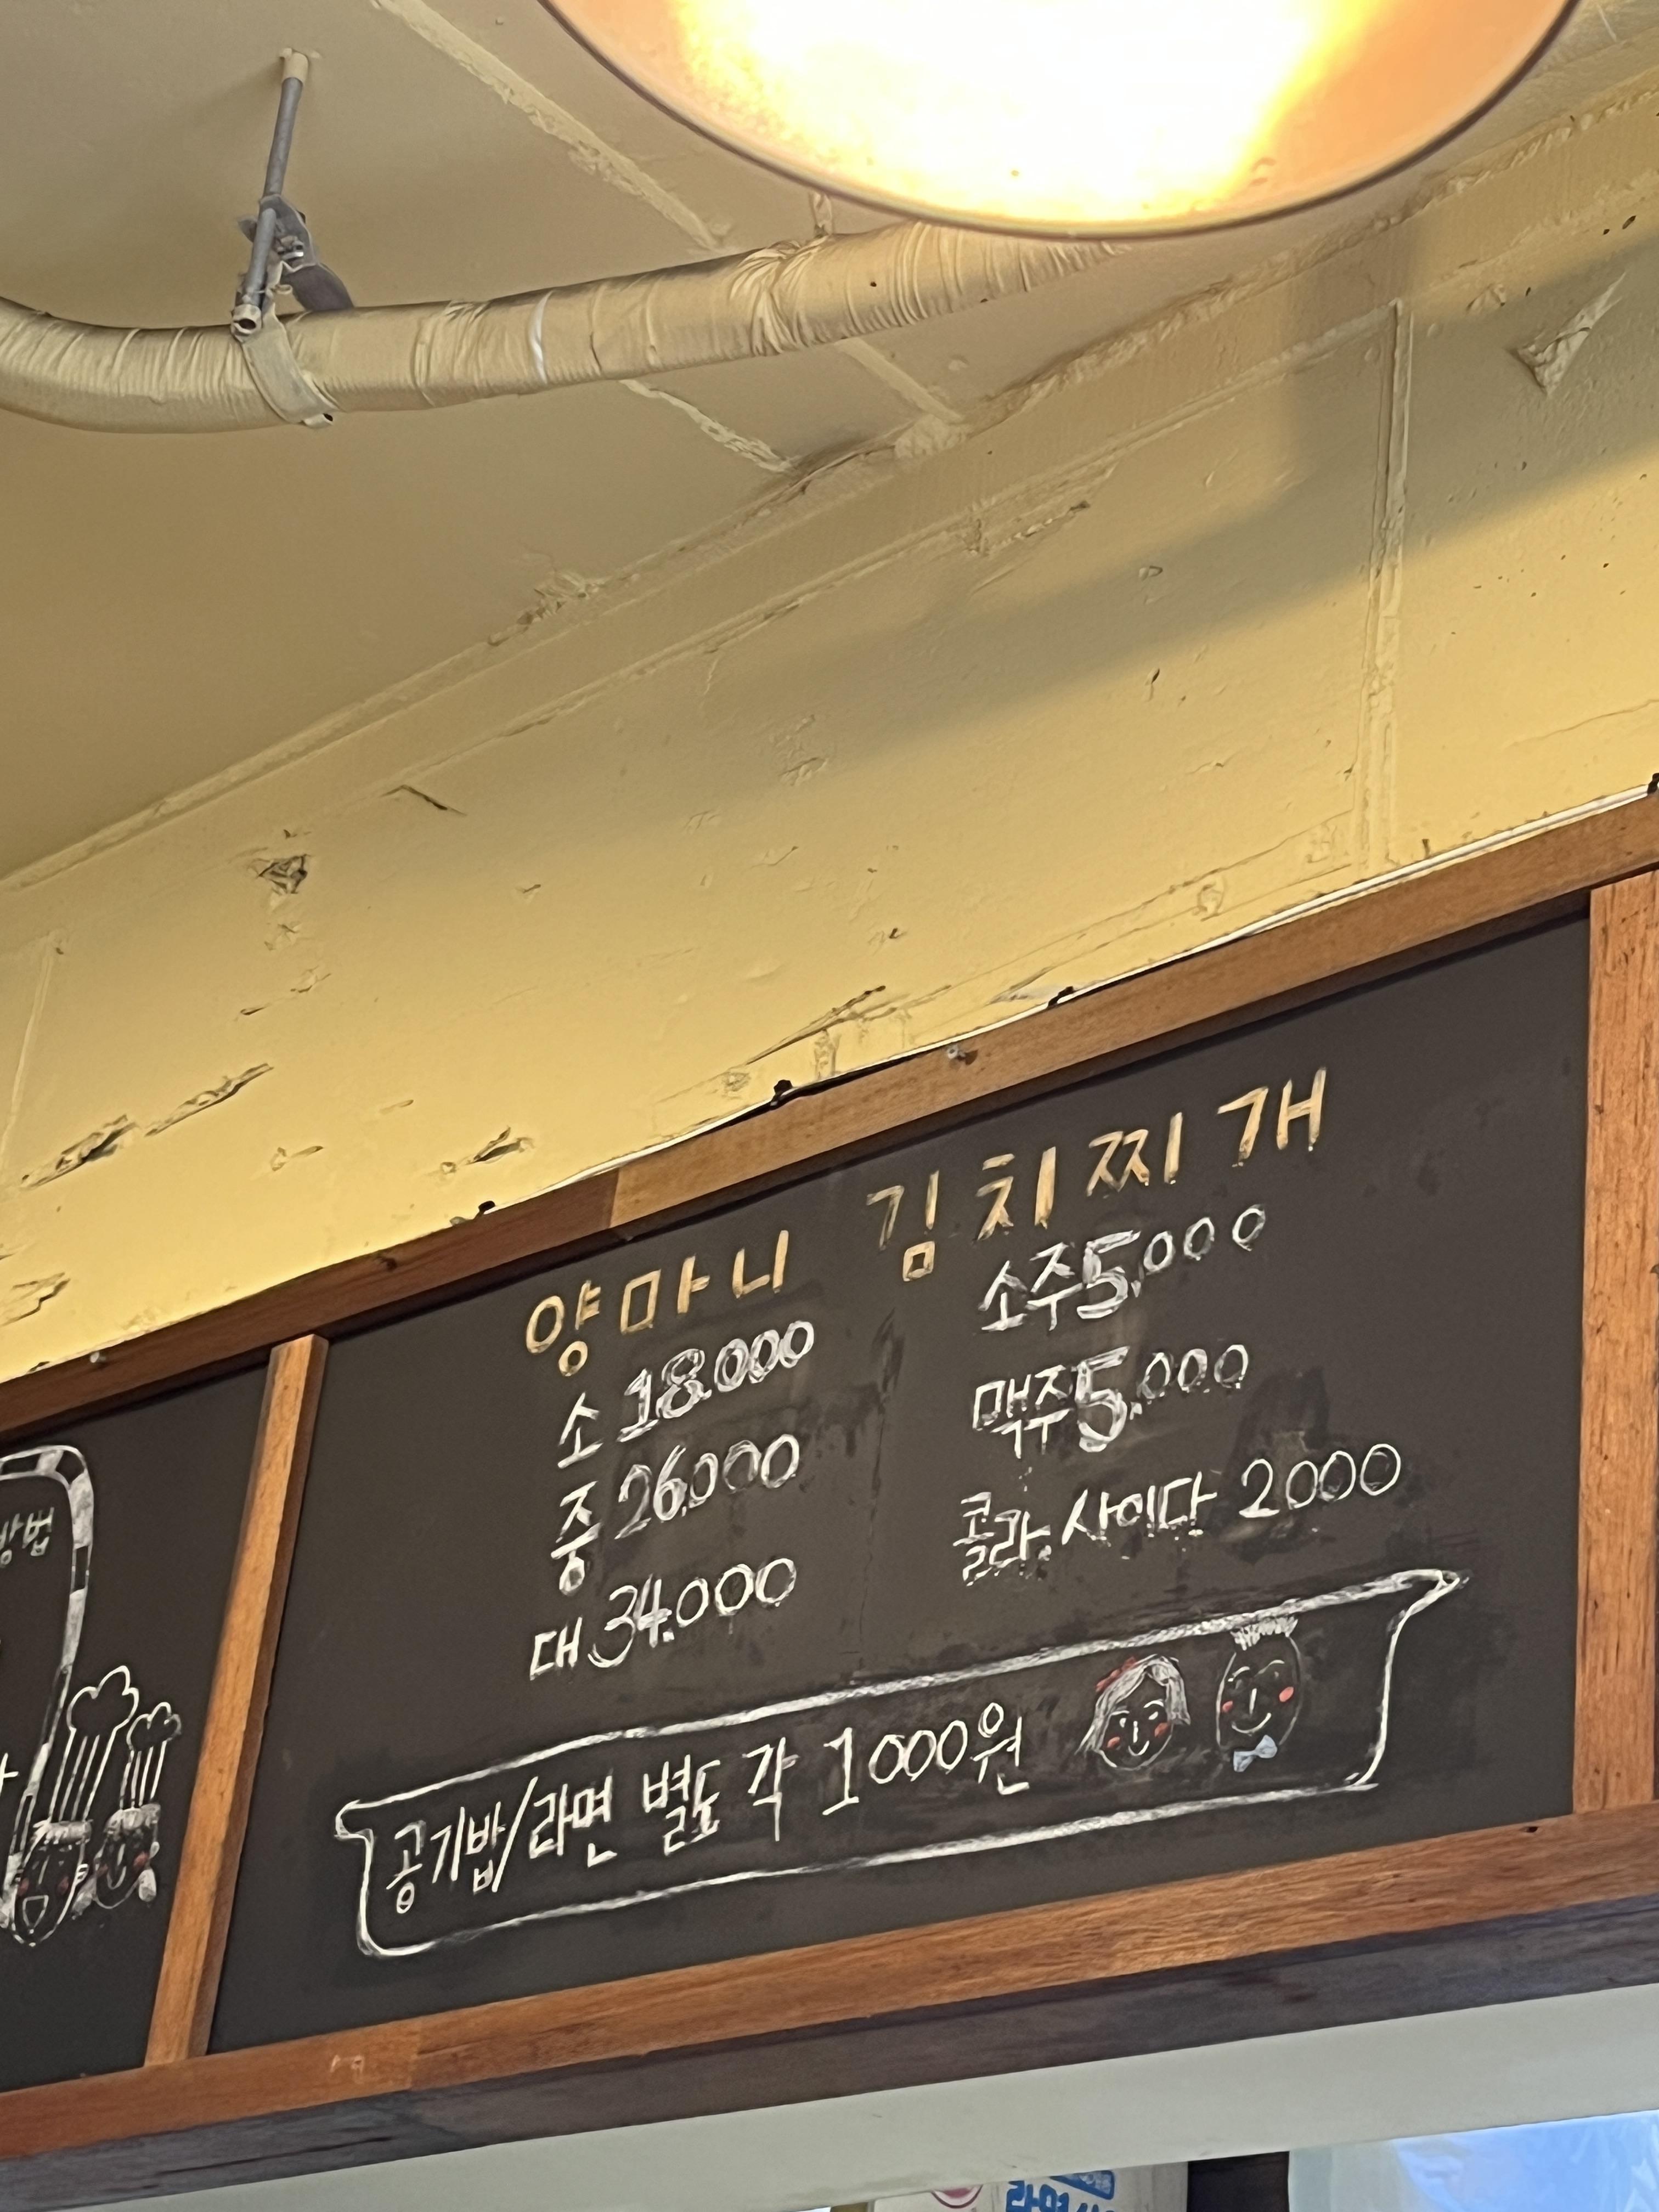 양마니 김치찌개
소 18.000
중 26.000
대 34.000
소주 5.000
맥주 5.000
콜라, 사이다 2000
공기밥/라면 별도 각 1000원